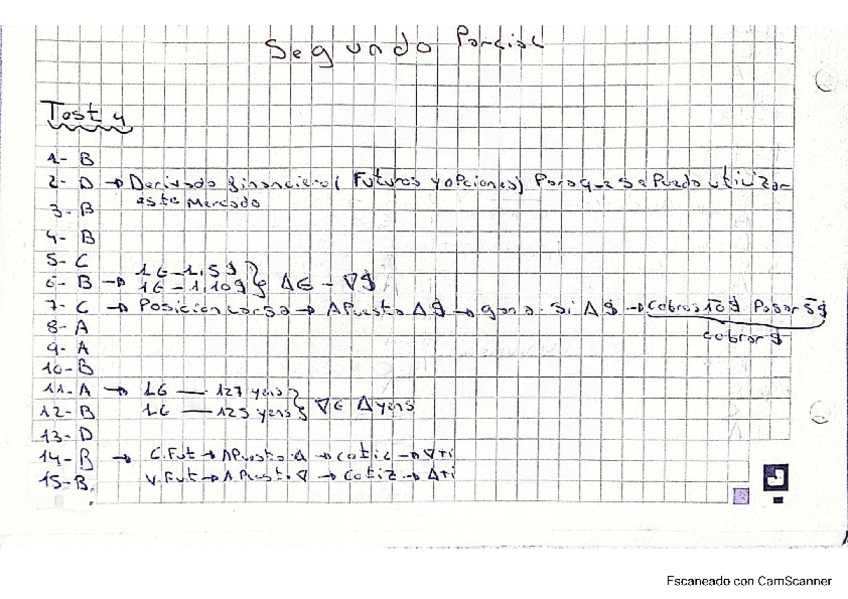 Segundo Parcial
Test 4
1- B
2- D → Derivado financiero (Futuros y opciones) Para que se pueda utilizar
este Mercado
3- B
4- B
5- C
6- B → 1€ - 1,5$ } Δ€ - ∇$
1€ - 1,10$
7- C → Posicion larga → Apuesta Δ$ → gana si Δ$ → cobras 10$ Pagar 5$
cobrar $
8- A
9- A
10- B
11- A → 1€ — 127 yens } ∇€ Δyens
12- B 1€ — 125 yens
13- D
14- B → C.Fut → Apuesta Δ → cotiz → ∇ti
15- B. V.Fut → Apuesta ∇ → cotiz → Δti
Escaneado con CamScanner